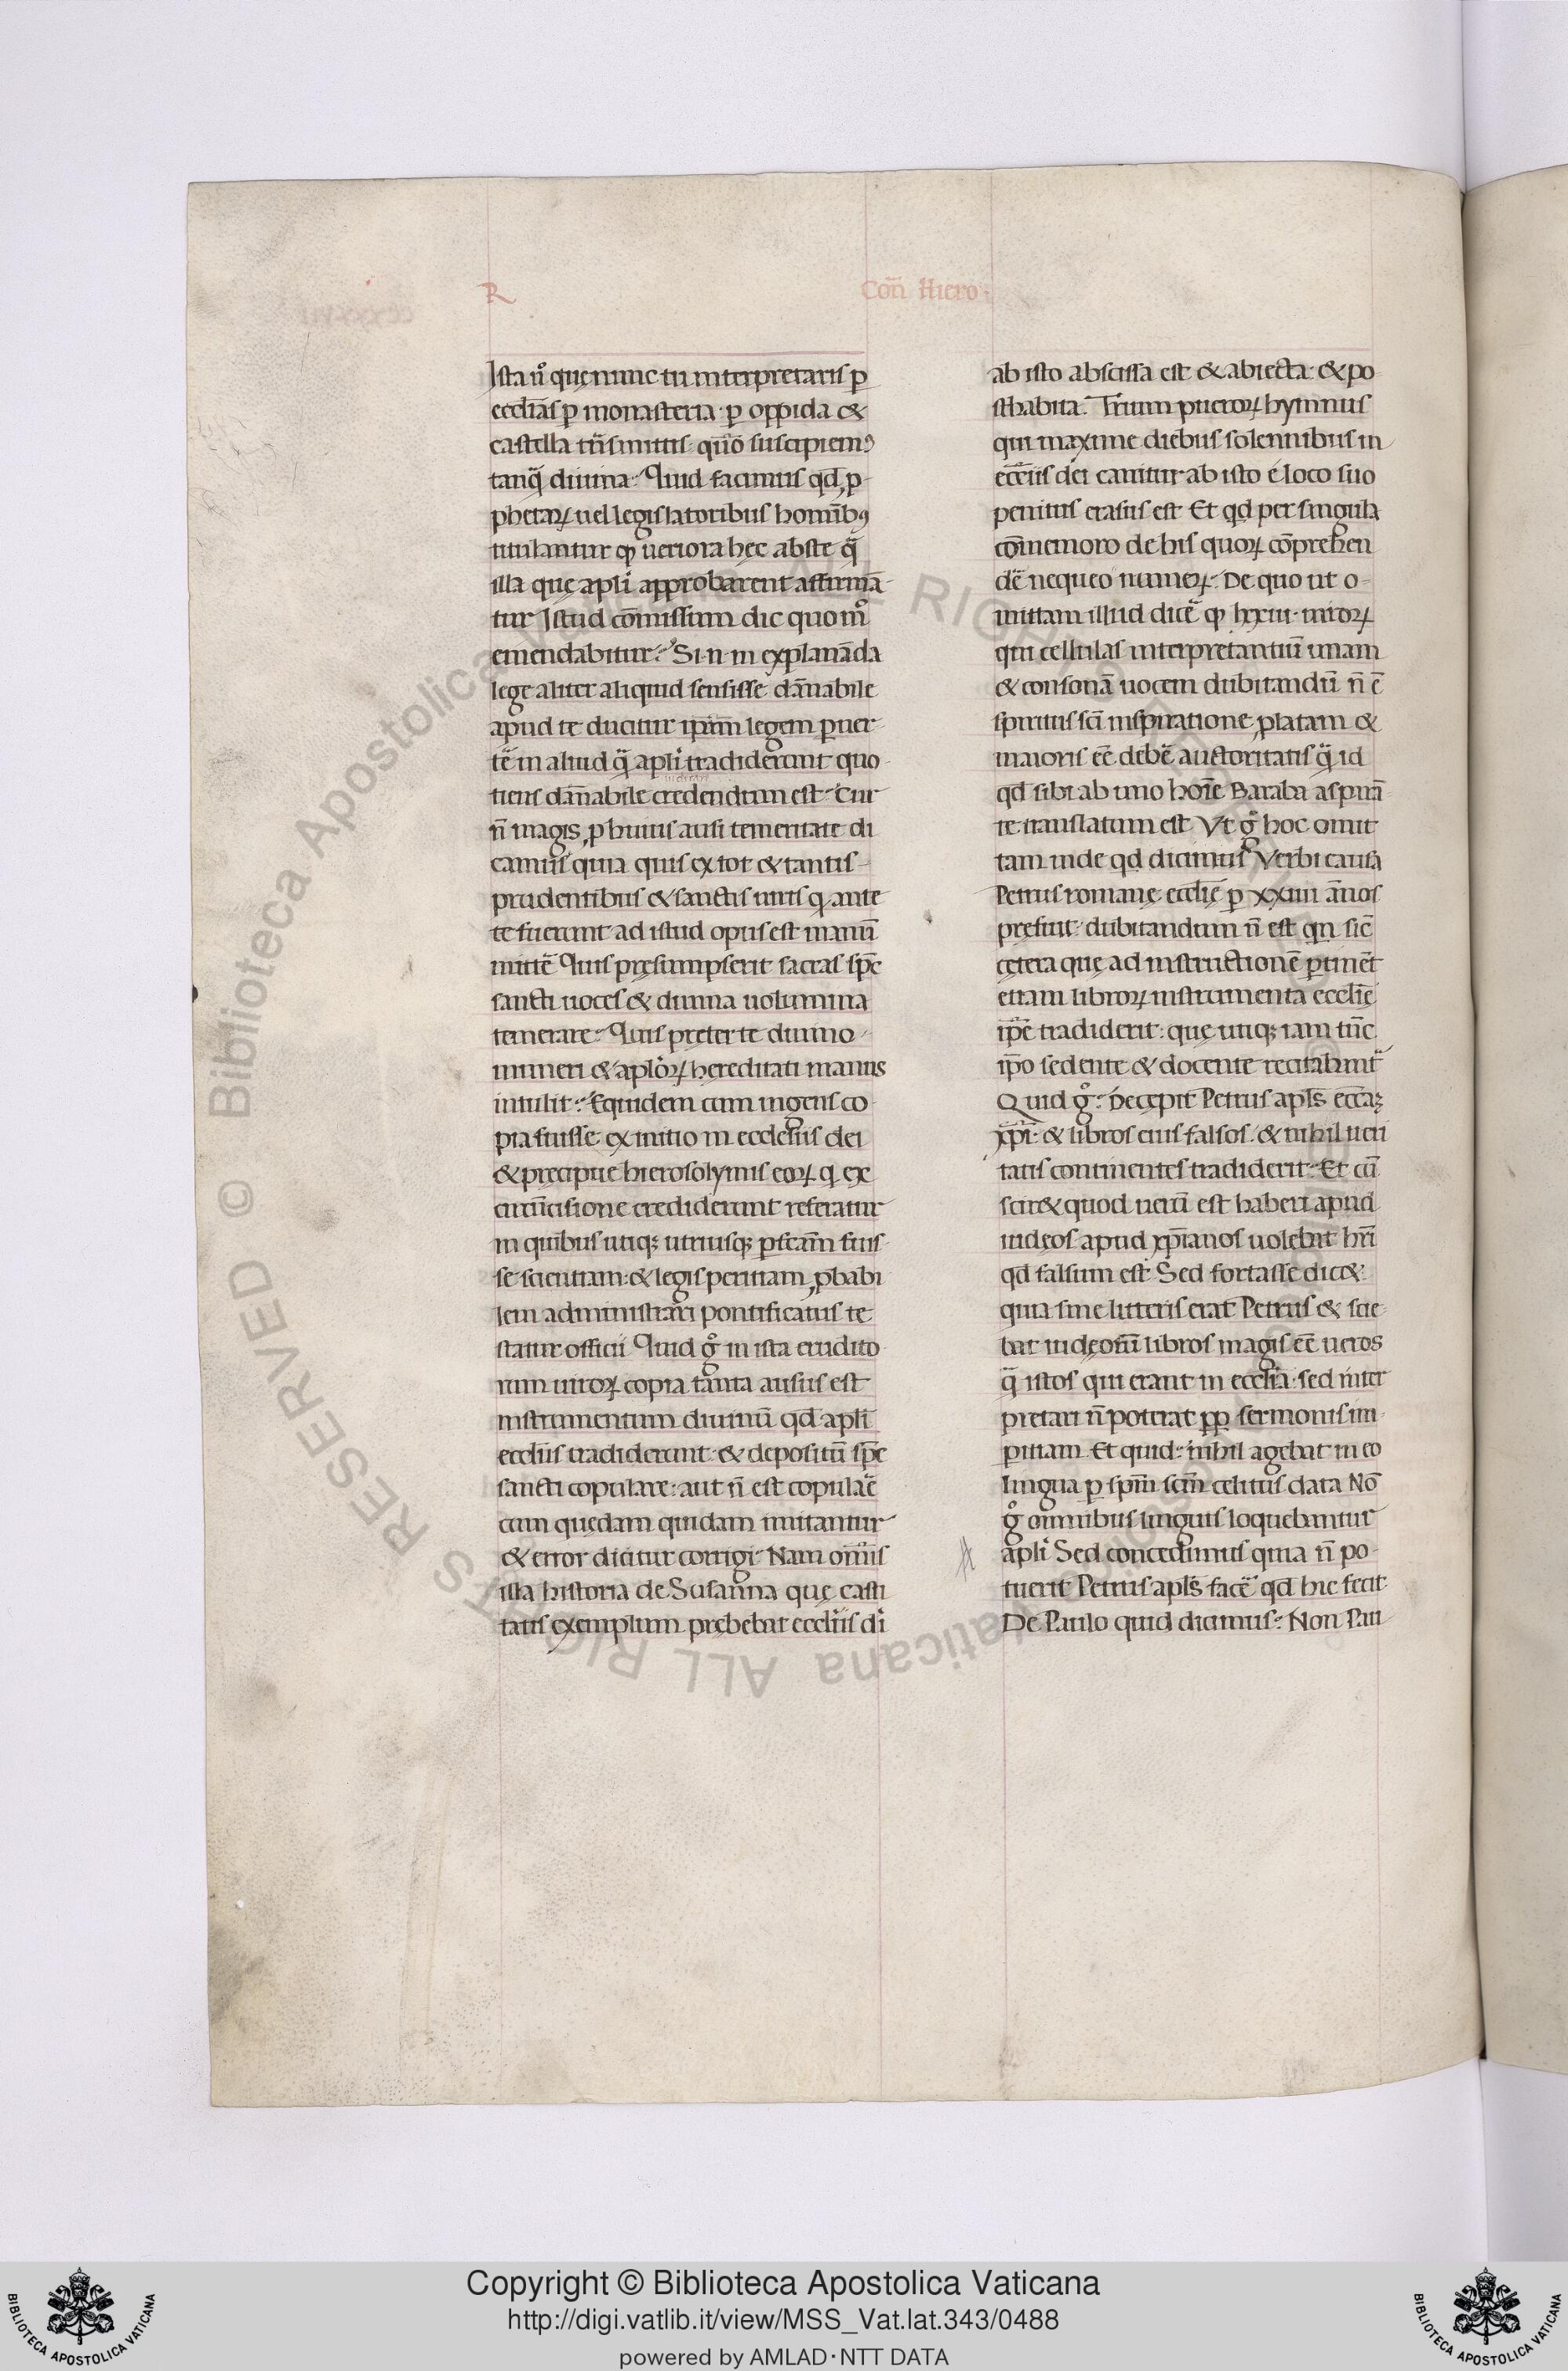 R
Con̄ Hiero·
Ista ůo que̜ nunc tu interpretaris ꝑ
eccl̄ias ꝑ monasteria· ꝑ oppida &
castella tn̄smittis· quō suscipiemꝰ
tanq̄ diuina? Quid facimus qd̄ ꝓ-
phetaꝝ uel legislatoribus homībꝰ
titulantur ꝙ ueriora he̜c abste q̄
illa que̜ apl̄i approbarent affirmā-
tur Istud com̄issum dic quom̊
emendabitur? Si·n·in explanāda
lege aliter aliquid sensisse dānabile
apud te ducitur ip̄am legem ꝑuer-
tē in aliud q̄ apl̄i tradiderunt quo-
tiens dānabile credendum est? Cur
n̄ magis ꝓ huius ausi temeritate di
camus quia quis ex tot & tantis-
prudentibus & sanctis uiris q ante
te fuerunt ad istud opus est manū
mittē Quis pre̜sumpserit sacras sp̄c
sancti uoces & diuina uolumina
temerare? Quis preter te diuino-
muneri & aploꝝ hereditati manus
intulit? Equidem cum ingens co-
pia fuisse ex initio in ecclesiis dei
& pre̜cipue hierosolymis eoꝝ q ex
circūcisione crediderunt referatur
in quibus utiqꝫ utriusqꝫ ꝑfectam̄ fuis-
se scientiam: & legis peritiam ꝓbabi
lem administrari pontificatus te
statur officii Quid g̊ in ista erudito-
rum uiroꝝ copia tanta ausus est
instrumentum diuinū qd̄ apl̄i
eccl̄iis tradiderunt· & depositū sp̄c
sancti copulare: aut n̄ est copulaē
cum que̜dam quidam imitantur
& error dicitur corrigi? Nam om̄is
illa historia de Susanna que̜ casti
tatis exemplum pre̜bebat eccl̄iis di
ab isto abscissa est & abiecta· & po
sthabita· Trium pueroꝝ hymnus
qui maxime diebus solennibus in
eccl̄iis dei canitur ab isto e loco suo
penitus erasus est Et qd̄ per singula
cōmemoro de his quoꝝ cōprehen
dē nequeo numeꝝ· De quo ut o-
mittam illud dicē ꝙ lxxiii· uiroꝝ
qui cellulas interpretantiū unam
& consonā uocem dubitandū n̄ ē
spiritus sc̄i inspiratione ꝓlatam &
maioris eē debē auctoritatis q̄ id
qd̄ sibi ab uno hoīe Baraba aspirā-
te translatum est Vt g̊ hoc omit
tam inde qd̄ dicimus Verbi causa
Petrus romane̜ eccl̄ie̜ ꝑ xxiiii ānos
pre̜fuit· dubitandum n̄ est qn̄ sic̄
ce̜tera que̜ ad instructionē ꝑtinēt
etiam libroꝝ instrumenta eccl̄ie̜
ip̄e tradiderit: que̜ utiqꝫ iam tūc
ip̄o sedente & docente recitabant̄
Quid g̊? Decepit Petrus apl̄s eccaꝫ
xp̄i· & libros eius falsos· & nihil ueri
tatis continentes tradiderit? Et cū
scir& quod uerū est haberi apud
iude̜os apud xp̄ianos uolebat hr̄i
qd̄ falsum est? Sed fortasse dic&·
quia sine litteris erat Petrus & scie-
bat iude̜orū libros magis eē ueros
q̄ istos qui erant in eccl̄ia· sed inter
pretari n̄ poterat ꝓp sermonis im-
ꝑitiam Et quid? nihil agebat in eo
lingua ꝑ sp̄m sc̄m celitus data Nō
g̊ om̄nibus linguis loquebantur
apl̄i Sed concedimus quia n̄ po-
tuerit Petrus apl̄s facē qd̄ hic fecit
De Paulo quid dicimus? Non Pau-
© Biblioteca Apostolica Vaticana ALL RIGHTS RESERVED
Copyright © Biblioteca Apostolica Vaticana
http://digi.vatlib.it/view/MSS_Vat.lat.343/0488
powered by AMLAD·NTT DATA
BIBLIOTECA APOSTOLICA VATICANA
BIBLIOTECA APOSTOLICA VATICANA